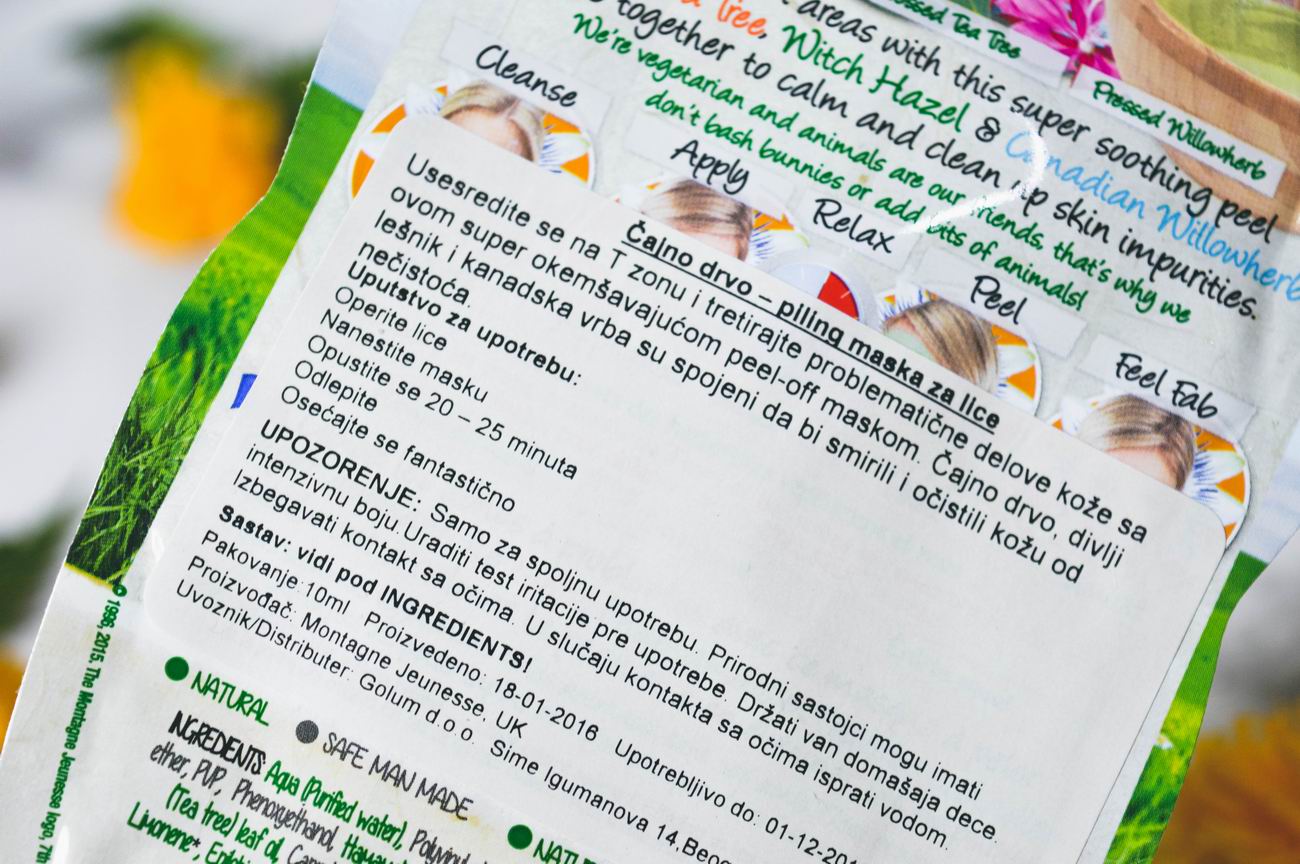 Tree, Witch Hazel & Canadian Willowherb
areas with this super soothing peel
together to calm and clean up skin impurities.
We're vegetarian and animals are our friends, that's why we
don't bash bunnies or add bits of animals!
Pressed Tea Tree
Pressed Willowherb
Cleanse
Apply
Relax
Peel
Feel Fab
Čajno drvo – piling maska za lice
Usesredite se na T zonu i tretirajte problematične delove kože sa
ovom super okemšavajućom peel-off maskom. Čajno drvo, divlji
lešnik i kanadska vrba su spojeni da bi smirili i očistili kožu od
nečistoća.
Uputstvo za upotrebu:
Operite lice
Nanestite masku
Opustite se 20 – 25 minuta
Odlepite
Osećajte se fantastično
UPOZORENJE: Samo za spoljnu upotrebu. Prirodni sastojci mogu imati
intenzivnu boju.Uraditi test iritacije pre upotrebe. Držati van domašaja dece.
Izbegavati kontakt sa očima. U slučaju kontakta sa očima isprati vodom.
Sastav: vidi pod INGREDIENTS!
Pakovanje:10ml Proizvedeno: 18-01-2016 Upotrebljivo do: 01-12-201
Proizvođač: Montagne Jeunesse, UK
Uvoznik/Distributer: Golum d.o.o. Sime Igumanova 14,Beog
NATURAL
SAFE MAN MADE
INGREDIENTS: Aqua (Purified water),
ether, PVP, Phenoxyethanol,
(Tea tree) leaf oil,
Limonene*,
© 1996, 2015. The Montagne Jeunesse logo, 7th